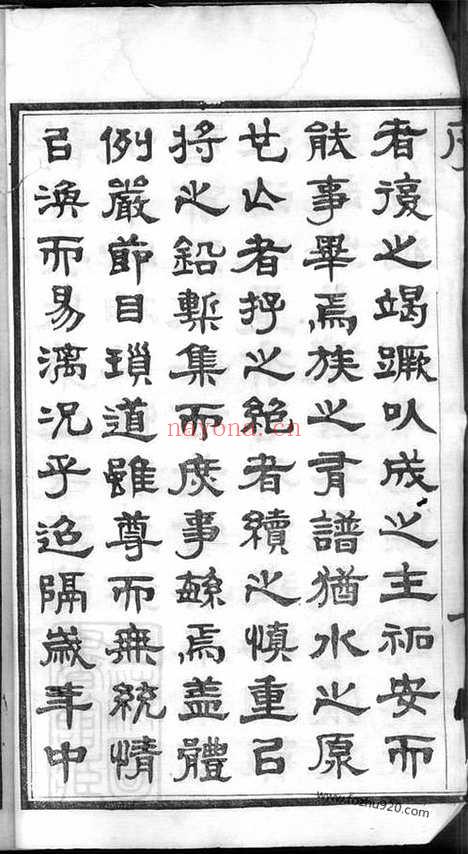 序
者復之竭蹶以成之主祏安而
能事畢焉族之有譜猶水之原
也亾者抒之絕者續之慎重以
將之鉛槧集而庶事繇焉蓋體
例嚴節目瑣道雖尊而無統情
以渙而易漓況乎迢隔歲年中
nayona.cn
www.fozhu920.com